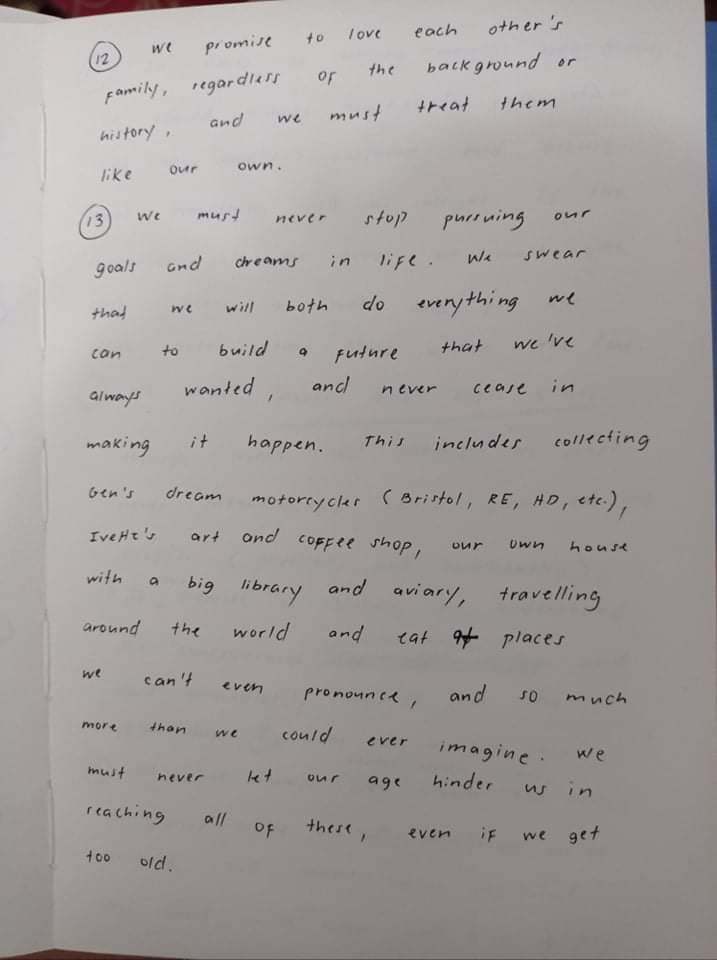 (12) We promise to love each other's
family, regardless of the background or
history, and we must treat them
like our own.
(13) We must never stop pursuing our
goals and dreams in life. We swear
that we will both do everything we
can to build a future that we've
always wanted, and never cease in
making it happen. This includes collecting
Gen's dream motorcycles (Bristol, RE, HD, etc.),
Ivette's art and coffee shop, our own house
with a big library and aviary, travelling
around the world and eat at places
we can't even pronounce, and so much
more than we could ever imagine. We
must never let our age hinder us in
reaching all of these, even if we get
too old.